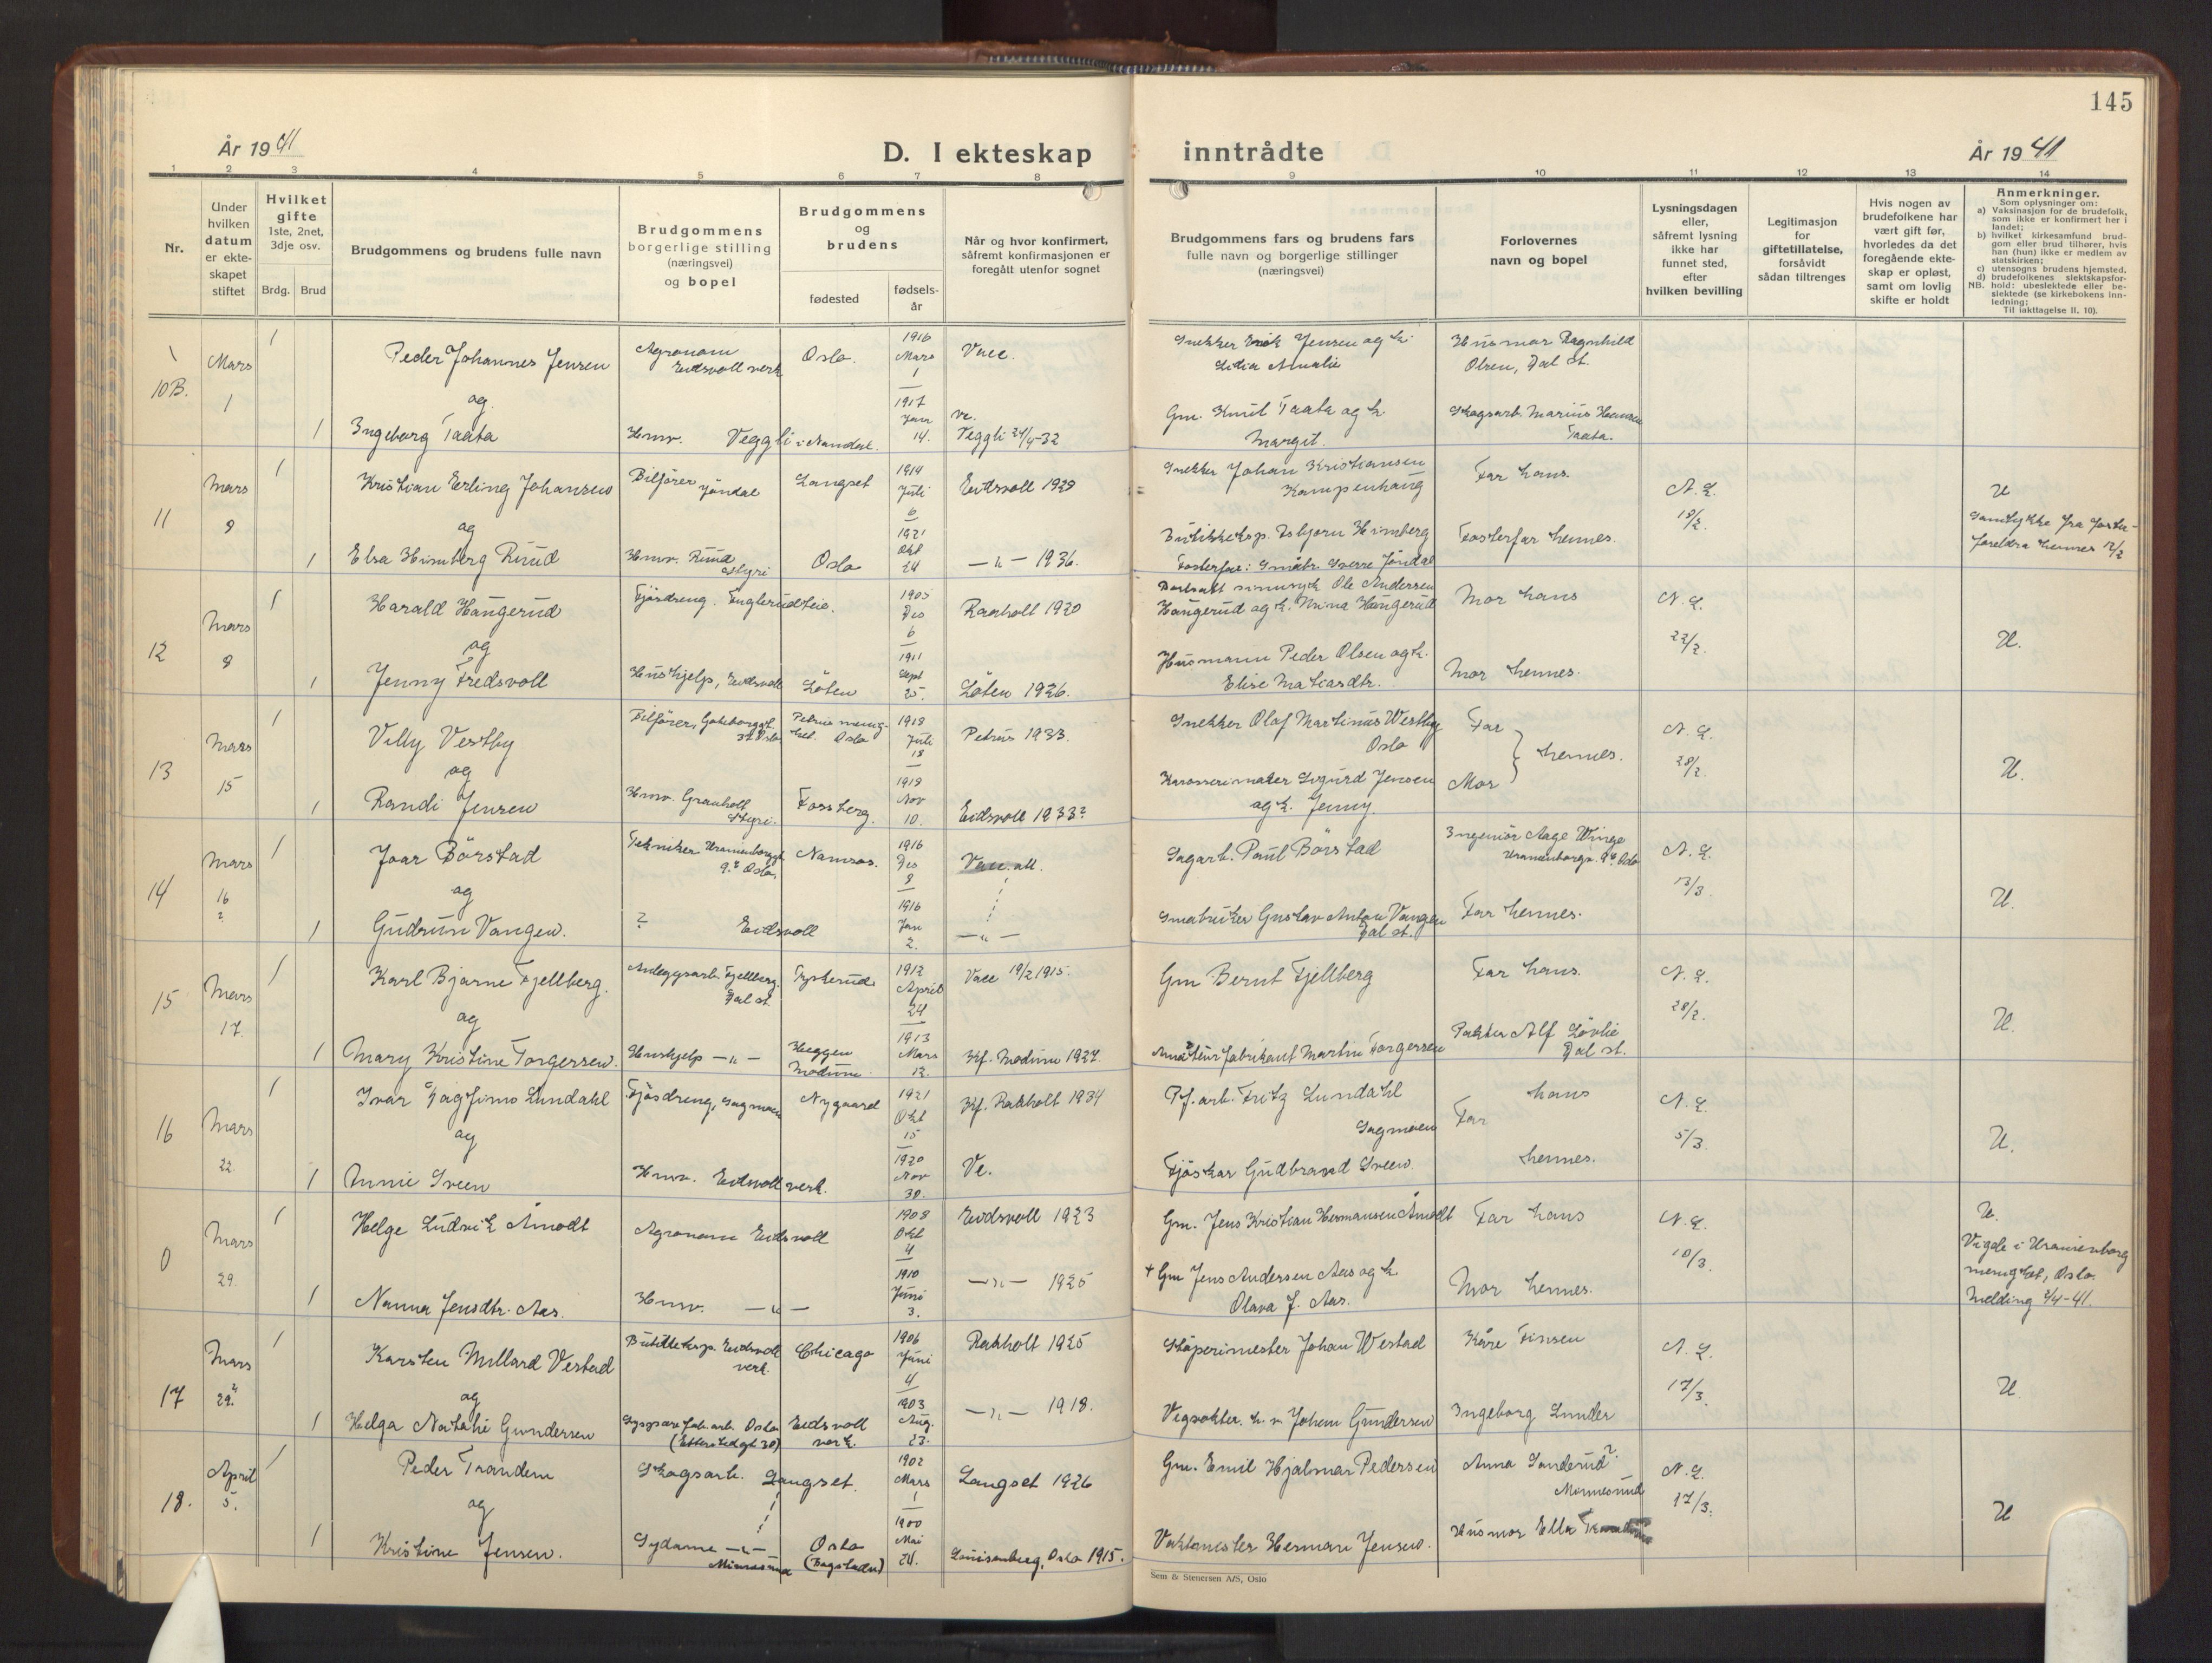 145
År 1941
D. I ekteskap inntrådte
År 1941
1 2 3 4 5 6 7 8 9 10 11 12 13 14
Nr.
Under
hvilken
datum
er ekte-
skapet
stiftet
Hvilket
gifte
1ste, 2net,
3dje osv.
Brdg. Brud
Brudgommens og brudens fulle navn
Brudgommens
borgerlige stilling
(næringsvei)
og bopel
Brudgommens
og
brudens
fødested
fødsels-
år
Når og hvor konfirmert,
såfremt konfirmasjonen er
foregått utenfor sognet
Brudgommens fars og brudens fars
fulle navn og borgerlige stillinger
(næringsvei)
Forlovernes
navn og bopel
Lysningsdagen
eller,
såfremt lysning
ikke har
funnet sted,
efter
hvilken bevilling
Legitimasjon
for
giftetillatelse,
forsåvidt
sådan tiltrenges
Hvis nogen av
brudefolkene har
vært gift før,
hvorledes da det
foregående ekte-
skap er opløst,
samt om lovlig
skifte er holdt
Anmerkninger.
Som oplysninger om:
a) Vaksinasjon for de brudefolk,
som ikke er konfirmert her i
landet;
b) hvilket kirkesamfund brud-
gom eller brud tilhører, hvis
han (hun) ikke er medlem av
statskirken;
c) utensogns brudens hjemsted.
d) brudefolkenes slektskapsfor-
NB. hold: ubeslektede eller be-
slektede (se kirkebokens inn-
ledning;
Til iakttagelse II. 10).
10B. Mars 1
1 Peder Johannes Jensen Agronom Eidsvoll verk Oslo. 1916 Mars 1 Vacc. Snekker Erik Jensen og h. Lidia Amalie Husmor Ragnhild Olsen, Dal st.
og
1 Ingeborg Taata Hmv. Veggli i Numdal. 1917 Jan 14. vc. Veggli 24/4-32 Gm. Knut Taata og h. Margit. Skogsarb. Marius Hansen Taata.
11 Mars 9
1 Kristian Erling Johansen Bilfører Jøndal Langset 1914 Juli 6 Eidsvoll 1929 Snekker Johan Kristiansen Kampenhaug Far hans. N.L. 19/2. U
og
1 Elsa Himberg Ruud Hmv. Ruud Styri Oslo 1921 Okt 24 —"— 1936. Butikkeksp. Esbjørn Himberg Fosterfar: Småbr. Sverre Jøndal Fosterfar hennes. Samtykke fra foster-
foreldra hennes 12/2
12 Mars 9
1 Harald Haugerud Fjøsdreng. Engterudteie. 1905 Des 6 Raaholt 1920 Ole Andersen Haugerud og h. Mina Haugerud Mor hans N.L. 22/2. U.
og
1 Jenny Fredsvoll Hushjelp, Eidsvoll Løten 1911 Sept 25. Løten 1926. Husmann Peder Olsen og h. Elise Matiasdtr. Mor hennes.
13 Mars 15
1 Villy Vestby Bilfører, Oslo Petrus menig-
het. Oslo 1918 Juli 18 Petrus 1933. Snekker Olaf Martinus Westby Oslo Far N.L. 28/2. U.
og hennes.
1 Randi Jensen Hmv. Granholt Styri. Fossberg. 1919 Nov 10. Eidsvoll 1933? Karosserimaker Sigurd Jensen og h. Jenny. Mor
14 Mars 16 ?
1 Joar Børstad Tekniker Uranienborggt. 9. Oslo. Namsos. 1916 Des 9 Vacc. att. Sagarb. Paul Børstad Ingeniør Aage Winge Uranienborgv. 9. Oslo N.L. 13/3. U.
og
1 Gudrun Vangen. ? Eidsvoll 1916 Jan 2. —"— Småbruker Gustav Anton Vangen Dal st. Far hennes.
15 Mars 17.
1 Karl Bjarne Fjellberg. Anleggsarb. Fjellberg. Dal st. Fysterud 1912 April 24 Vacc 19/2 1915. Gm Bernt Fjellberg Far hans. N.L. 28/2. U.
og
1 Mary Kristine Torgersen. Hushjelp —"— Heggen Modum. 1913 Mars 12. Kf. Modum 1927. Martin Torgersen Pakker Alf Løvlie Dal st.
16 Mars 22.
1 Ivar Dagfinn Lundahl Fjøsdreng, Sagmoen Nygaard 1921 Okt 15 Kf. Raaholt 1934 Pf.arb. Fritz Lundahl Sagmoen Far hans N.L. 5/3. U.
og
1 Annie Sveen Hmv. Eidsvoll verk. 1920 Nov 30. Vc. Fjøskar Gudbrand Sveen hennes.
0 Mars 29.
1 Helge Ludvik Åmodt Agronom Eidsvoll 1908 Okt 4 Eidsvoll 1923 Gm. Jens Kristian Hermansen Åmodt Far hans N.L. 10/3. U.
1 Nanna Jensdtr. Aas. Hmv. —"— 1910 Juni 3. —"— 1925 + Gm Jens Andersen Aas og h. Olava J. Aas. Mor hennes. Vigde i Uranienborg
menighet, Oslo.
Melding 2/4-41.
17 Mars 29.
1 Karsten Millard Vestad Butikkeksp. Eidsvoll verk. Chicago 1906 Juni 4 Raaholt 1925 Støperimester Johan Westad Kåre Finsen N.L. 17/3. U
og
1 Helga Natalie Gundersen Oslo (Etterstadgt 30) Eidsvoll verk. 1903 Aug. 23. —"— 1918. Vegvokter. Johan Gundersen Ingeborg Lunder
18. April 5.
1 Peder Trandem Skogsarb. Langset. 1902 Mars 1 Langset 1926 Gm. Emil Hjalmar Pedersen Anna Sanderud? Minnesund N.L. 17/3. U
og
1 Kristine Jensen. Sydame —"— Minnesund Oslo (Bogstadv.) 1900 Mai 24. Louisenberg, Oslo 1915. Vaktmester Herman Jensen. Husmor Ella
Sem & Stenersen A/S, Oslo